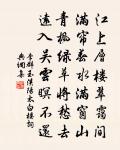 江上層樓翠靄間
滿簾春水滿窗山
青楓綠草將愁去
遠入吳雲暝不還
李群玉漢陽太白樓